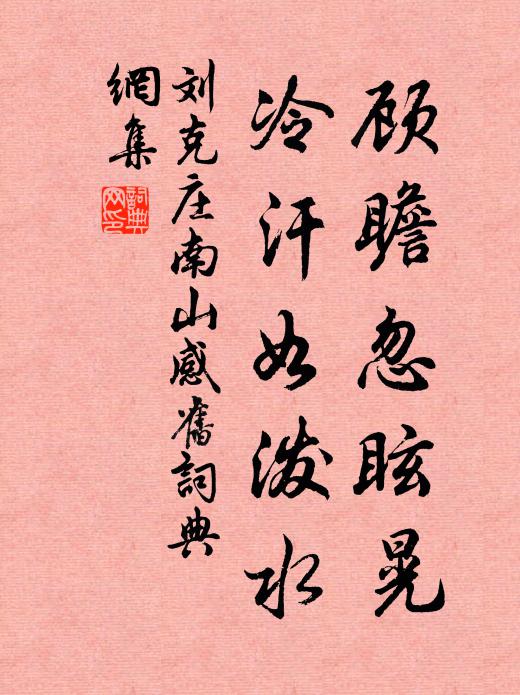 顾瞻忽眩晃
冷汗如泼水
刘克庄南山感旧詞典
網集
詞典
网印